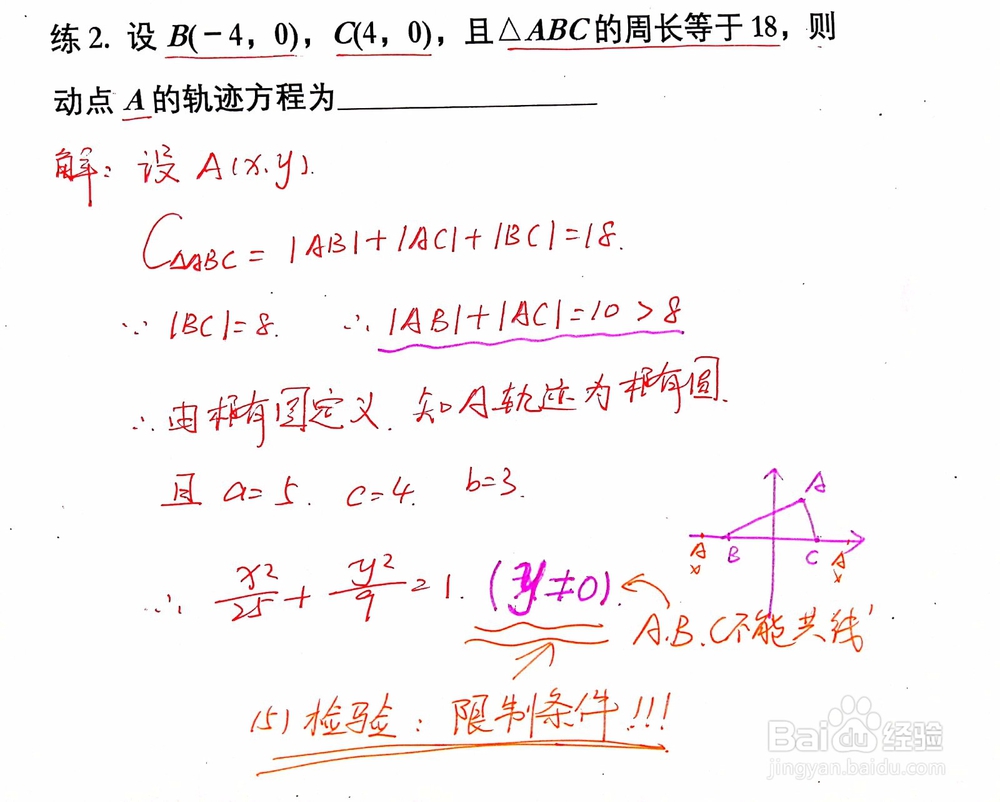 练2. 设B(-4,0),C(4,0),且△ABC的周长等于18,则
动点A的轨迹方程为____________
解:设A(x.y).
C△ABC=|AB|+|AC|+|BC|=18.
∵ |BC|=8. ∴ |AB|+|AC|=10>8
∴由椭圆定义. 知A轨迹为椭圆.
且 a=5. c=4. b=3.
A
A B C A
x x
∴ x²/25 + y²/9 = 1. (y≠0).
A.B.C不能共线
(5)检验:限制条件!!!
Baidu经验
jingyan.baidu.com